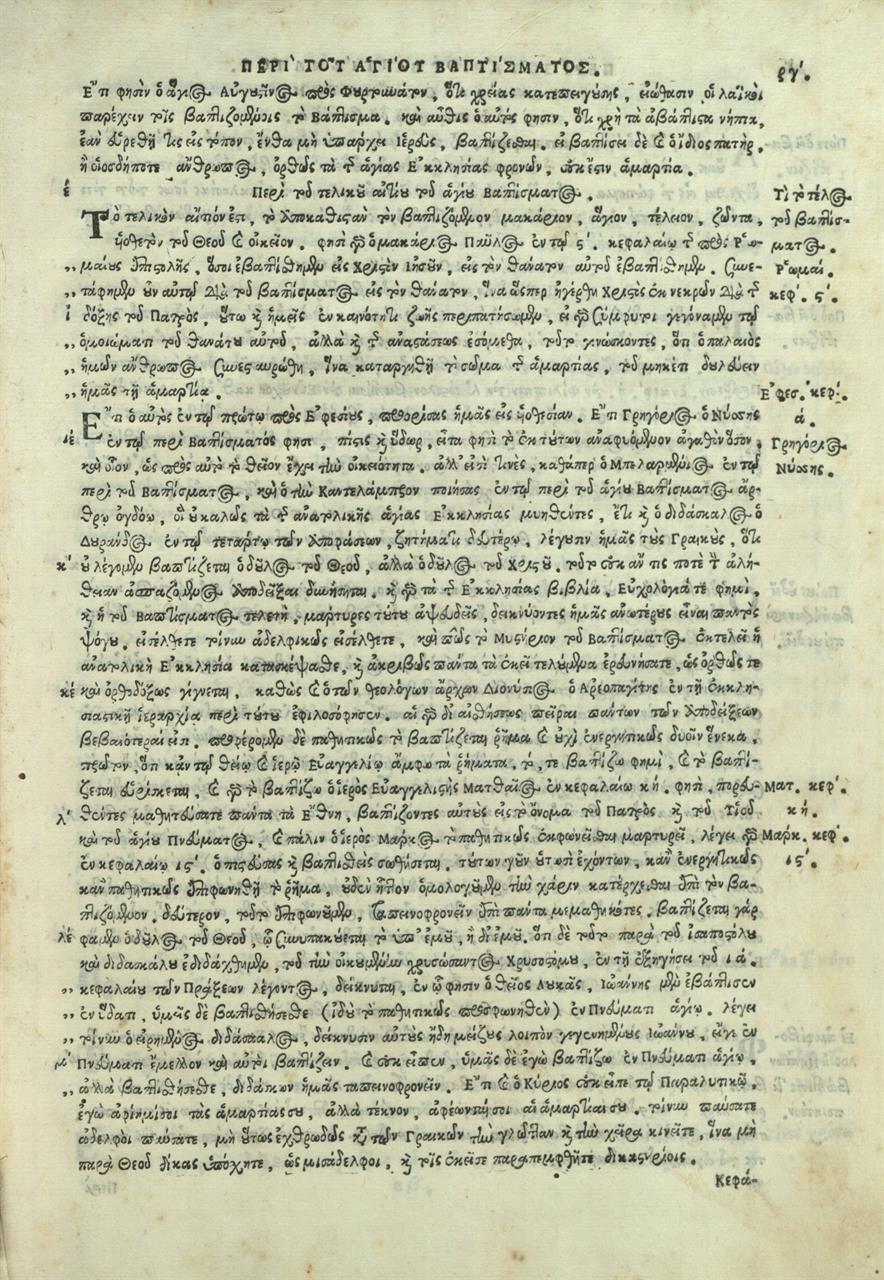 ΠΕΡΙ ΤΟΥ ΑΓΙΟΥ ΒΑΠΤΙΣΜΑΤΟΣ.
ργ΄.
Ἔτι φησὶν ὁ ἅγιος Αὐγουστῖνος πρὸς Φουρτουνάτον, ὅτι χρείας κατεπειγούσης, εἰώθασιν οἱ λαϊκοὶ
παρέχειν τοῖς βαπτιζομένοις τὸ Βάπτισμα. καὶ αὖθις ὁ αὐτός φησιν, ὅτι χρὴ τὰ ἀβάπτιστα νήπια,
ἐὰν εὑρεθῇ τις εἰς τόπον, ἔνθα μὴ ὑπάρχει Ἱερεὺς, βαπτίζεσθαι. εἰ βαπτίσει δὲ καὶ ὁ ἴδιος πατὴρ,
ἢ οἱοσδήποτε ἄνθρωπος, ὀρθῶς τὰ τῆς ἁγίας Ἐκκλησίας φρονῶν, οὐκ ἔστιν ἁμαρτία.
έ Περὶ τοῦ τελικοῦ αἰτίου τοῦ ἁγίου Βαπτίσματος. Τί τὸ τέλος
Τὸ τελικὸν αἴτιόν ἐστι, τὸ ἀποκαθιστᾶν τὸν βαπτιζόμενον μακάριον, ἅγιον, τέλειον, ζῶντα, τοῦ βαπτίσ-
υἱοθετὸν τοῦ Θεοῦ καὶ οἰκεῖον. φησὶ γὰρ ὁ μακάριος Παῦλος ἐν τῷ ς΄. κεφαλαίῳ τῆς πρὸς Ῥω- ματος.
,, μαίους ἐπιστολῆς, ὅσοι ἐβαπτίσθημεν εἰς Χριστὸν Ἰησοῦν, εἰς τὸν θάνατον αὐτοῦ ἐβαπτίσθημεν. συνε- Ῥωμαί.
,, τάφημεν οὖν αὐτῷ διὰ τοῦ βαπτίσματος εἰς τὸν θάνατον, ἵνα ὥσπερ ἠγέρθη Χριστὸς ἐκ νεκρῶν διὰ τῆς κεφ. ς΄.
ί δόξης τοῦ Πατρὸς, οὕτω καὶ ἡμεῖς ἐν καινότητι ζωῆς περιπατήσωμεν, εἰ γὰρ σύμφυτοι γεγόναμεν τῷ
,, ὁμοιώματι τοῦ θανάτου αὐτοῦ, ἀλλὰ καὶ τῆς ἀναστάσεως ἐσόμεθα, τοῦτο γινώσκοντες, ὅτι ὁ παλαιὸς
,, ἡμῶν ἄνθρωπος συνεσταυρώθη, ἵνα καταργηθῇ τὸ σῶμα τῆς ἁμαρτίας, τοῦ μηκέτι δουλεύειν
,, ἡμᾶς τῇ ἁμαρτίᾳ. Ἐφεσ. κεφ.
Ἔτι ὁ αὐτὸς ἐν τῷ πρώτῳ πρὸς Ἐφεσίους, προορίσας ἡμᾶς εἰς υἱοθεσίαν. Ἔτι Γρηγόριος ὁ Νύσσης ά.
ιέ ἐν τῷ περὶ Βαπτίσματός φησι, πίστις καὶ ὕδωρ, εἶτα φησὶ τὸ ἐκ τούτων ἀναφυόμενον ἀγαθὸν ὅσον, Γρηγόριος
καὶ οἷον, ὡς πρὸς αὐτὸ τὸ θεῖον ἔχει τὴν οἰκειότητα. ἀλλ' εἰσί τινὲς, καθάπερ ὁ Μπελαρμῖνος ἐν τῷ Νύσσης.
περὶ τοῦ Βαπτίσματος, καὶ ὁ τὴν Καντελάμπραν ποιήσας ἐν τῷ περὶ τοῦ ἁγίου Βαπτίσματος ἄρ-
θρῳ ὀγδόῳ, οἳ οὐ καλῶς τὰ τῆς ἀνατολικῆς ἁγίας Ἐκκλησίας μυηθέντες, ἔτι καὶ ὁ διδάσκαλος ὁ
Δουράνδος ἐν τῷ τετάρτῳ τῶν ἀποφάσεων, ζητήματι δευτέρῳ, λέγουσιν ἡμᾶς τοὺς Γραικοὺς, ὅτι
κ΄ οὐ λέγομεν βαπτίζεται ὁ δοῦλος τοῦ Θεοῦ, ἀλλὰ ὁ δοῦλος τοῦ Χριστοῦ. τοῦτο οὐκ ἄν τις ποτὲ τὴν ἀλή-
θειαν ἀσπαζόμενος ἀποδεῖξαι δυνήσηται. καὶ γὰρ τὰ τῆς Ἐκκλησίας βιβλία, Εὐχολόγιά τε φημὶ,
καὶ ἡ τοῦ Βαπτίσματος τελετὴ, μάρτυρες τούτου ἀψευδεῖς, δεικνύοντες ἡμᾶς ἀνωτέρους εἶναι παντὸς
ψόγου. εἰσέλθετε τοίνυν ἀδελφικῶς εἰσέλθετε, καὶ πῶς τὸ Μυστήριον τοῦ Βαπτίσματος ἐκτελεῖ ἡ
ἀνατολικὴ Ἐκκλησία κατασκέψασθε, καὶ ἀκριβῶς πάντα τὰ ἐκεῖ τελούμενα ἐρευνήσατε, ὡς ὀρθῶς τε
κέ καὶ ὀρθοδόξως γίγνεται, καθὼς καὶ ὁ τῶν θεολόγων ἄρχων Διονύσιος ὁ Ἀρεοπαγίτης ἐν τῇ ἐκκλη-
σιαστικῇ ἱεραρχίᾳ περὶ τούτου ἐφιλοσόφησεν. αἱ γὰρ δι' αἰσθήσεως πεῖραι πάντων τῶν ἀποδείξεων
βεβαιότεραί εἰσι. προφέρομεν δὲ παθητικῶς τὸ βαπτίζεται ῥῆμα καὶ οὐχὶ ἐνεργητικῶς δυοῖν ἕνεκα,
πρῶτον, ὅτι κἀν τῷ θείῳ καὶ ἱερῷ Εὐαγγελίῳ ἄμφω τὰ ῥήματα, τό, τε βαπτίζω φημὶ, καὶ τὸ βαπτί-
ζεται εὑρίσκεται, καὶ γὰρ τὸ βαπτίζω ὁ ἱερὸς Εὐαγγελιστὴς Ματθαῖος ἐν κεφαλαίῳ κή. φησὶ, πορευ- Ματ. κεφ.
λ΄ θέντες μαθητεύσατε πάντα τὰ ἔθνη, βαπτίζοντες αὐτοὺς εἰς τὸ ὄνομα τοῦ Πατρὸς καὶ τοῦ Υἱοῦ κή.
καὶ τοῦ ἁγίου Πνεύματος, καὶ πάλιν ὁ ἱερὸς Μάρκος τὸ παθητικῶς ἐκφωνεῖσθαι μαρτυρεῖ, λέγει γὰρ Μαρκ. κεφ.
ἐν κεφαλαίῳ ις΄. ὁ πιστεύσας καὶ βαπτισθεὶς σωθήσεται. τούτων γοῦν οὕτως ἐχόντων, κἂν ἐνεργητικῶς ις΄.
κἂν παθητικῶς ἐπιφωνηθῇ τὸ ῥῆμα, οὐδὲν ἧττον ὁμολογοῦμεν τὴν χάριν κατέρχεσθαι ἐπὶ τὸν βα-
πτιζόμενον. δεύτερον, τοῦτο ἐπιφωνοῦμεν, ταπεινοφρονεῖν ἐπὶ πάντα μεμαθηκότες. βαπτίζεται γάρ
λέ φαμεν ὁ δοῦλος τοῦ Θεοῦ, ᾧ συνυπακούεται τὸ ὑπ' ἐμοῦ, ἢ δι' ἐμοῦ. ὅτι δὲ τοῦτο παρὰ τοῦ ἰσαποστόλου
καὶ διδασκάλου ἐδιδάχθημεν, τοῦ τὴν οἰκουμένην χρυσώσαντος Χρυσοστόμου, ἐν τῇ ἐξηγήσει τοῦ ιά.
,, κεφαλαίου τῶν Πράξεων λέγοντος, δείκνυται, ἐν ᾧ φησιν ὁ θεῖος Λουκᾶς, Ἰωάννης μὲν ἐβάπτισεν
,, ἐν ὕδατι, ὑμεῖς δὲ βαπτισθήσεσθε (ἰδοὺ τὸ παθητικῶς προσφωνηθὲν) ἐν Πνεύματι ἁγίῳ. λέγει
τοίνυν ὁ εἰρημένος διδάσκαλος, δείκνυσιν αὐτοὺς ἤδη μείζους λοιπὸν γεγενημένους Ἰωάννου, εἴγε ἐν
μ΄ Πνεύματι ἔμελλον καὶ αὐτοὶ βαπτίζειν. καὶ οὐκ εἶπεν, ὑμᾶς δὲ ἐγὼ βαπτίζω ἐν Πνεύματι ἁγίῳ,
,, ἀλλὰ βαπτισθήσεσθε, διδάσκων ἡμᾶς ταπεινοφρονεῖν. Ἔτι καὶ ὁ Κύριος οὐκ εἶπε τῷ Παραλυτικῷ,
,, ἐγὼ ἀφίημί σοι τὰς ἁμαρτίας σου, ἀλλὰ τέκνον, ἀφέωνταί σοι αἱ ἁμαρτίαι σου. τοίνυν παύσατε
ἀδελφοὶ παύσατε, μὴ οὕτως ἐχθρωδῶς κατὰ τῶν Γραικῶν τὴν γλῶτταν καὶ τὴν χεῖρα κινεῖτε, ἵνα μὴ
παρὰ Θεοῦ δίκας ὑπόσχητε, ὡς μισάδελφοι, καὶ τοῖς ἐκεῖσε παραπεμφθῆτε δικαστηρίοις.
Κεφά-